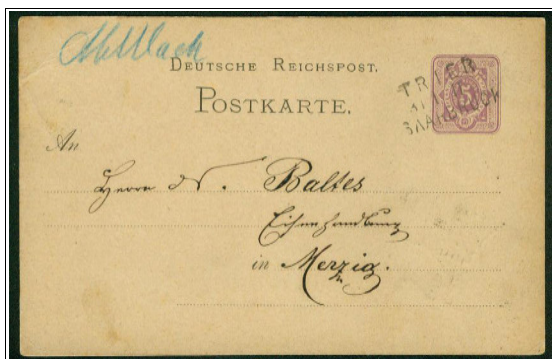 Mettlach
DEUTSCHE REICHSPOST.
POSTKARTE.
TRIER
SAARBRÜCK
5
An
Herrn Baltes
Eisenhandlung
in Merzig.